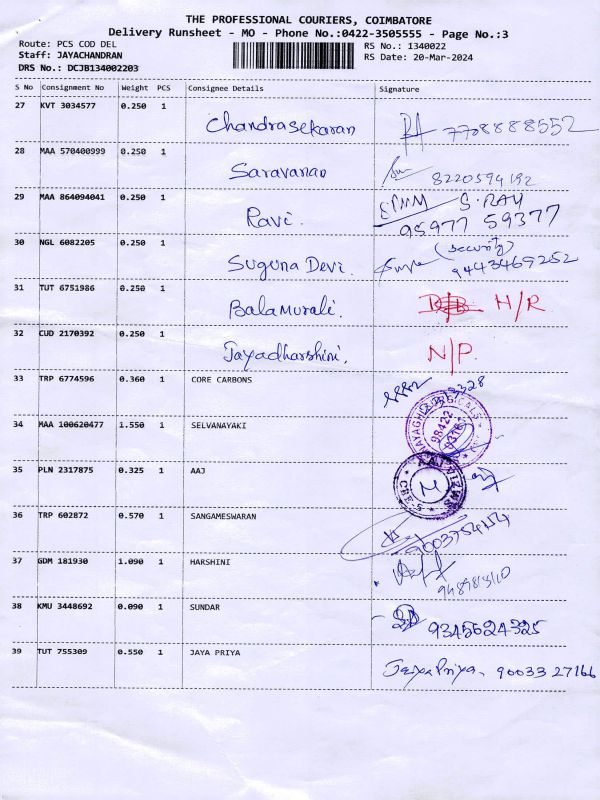 THE PROFESSIONAL COURIERS, COIMBATORE
Delivery Runsheet - MO - Phone No.:0422-3505555 - Page No.:3
Route: PCS COD DEL
RS No.: 1340022
Staff: JAYACHANDRAN
RS Date: 20-Mar-2024
DRS No.: DCJB134002203
S No Consignment No Weight PCS Consignee Details Signature
27 KVT 3034577 0.250 1 Chandrasekaran 7708888552
28 MAA 570400999 0.250 1 Saravanan 8220594192
29 MAA 864094041 0.250 1 Ravi. S.RAY
95977 59377
30 NGL 6082205 0.250 1 Suguna Devi. (security)
9443469252
31 TUT 6751986 0.250 1 Balamurali. H/R
32 CUD 2170392 0.250 1 Jayadharshini. N/P.
33 TRP 6774596 0.360 1 CORE CARBONS
34 MAA 100620477 1.550 1 SELVANAYAKI
35 PLN 2317875 0.325 1 AAJ
36 TRP 602872 0.570 1 SANGAMESWARAN
37 GDM 181930 1.090 1 HARSHINI
38 KMU 3448692 0.090 1 SUNDAR 9345624325
39 TUT 755309 0.550 1 JAYA PRIYA JayaPriya. 90033 27166